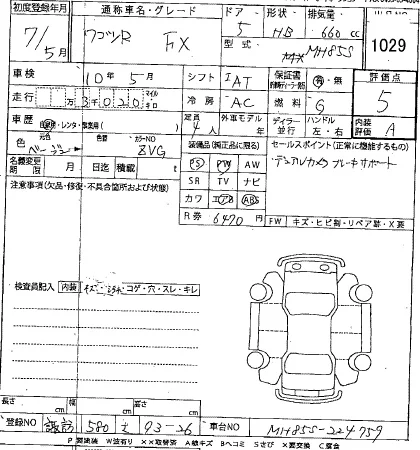 初度登録年月 通称車名・グレード ドア 形状 排気量
7/5月 ワゴンR FX 5 HB 660 cc
型式 MH85S 1029
車検 10年5月 シフト IAT 保証書 有・無 評価点
走行 万3千020 マイル キロ 冷房 AC 燃料 G 5
車歴 自家・レンタ・営業用( ) 定員 4人 外車モデル 年 ディーラー・並行 ハンドル 左・右 内装評価 A
色 元色 ベージュ 色替 カラーNO ZVG 装備品(純正品に限る) セールスポイント(正常に機能するもの)
名義変更期限 月 日迄 積載 t PS PW AW デュアルカメラブレーキサポート
注意事項(欠品・修復・不具合箇所および状態) SR TV ナビ
カワ エアB ABS
R券 6470円 FW キズ・ヒビ割・リペア跡・X要
検査員記入 内装 キズ コゲ・穴・スレ・キレ
長さ cm 幅 cm 高さ cm
登録NO 諏訪 580 93-26 車台NO MH85S-224759
P要塗装 W波有り XX取替済 A線キズ Bヘコミ Sさび X要交換 C腐食